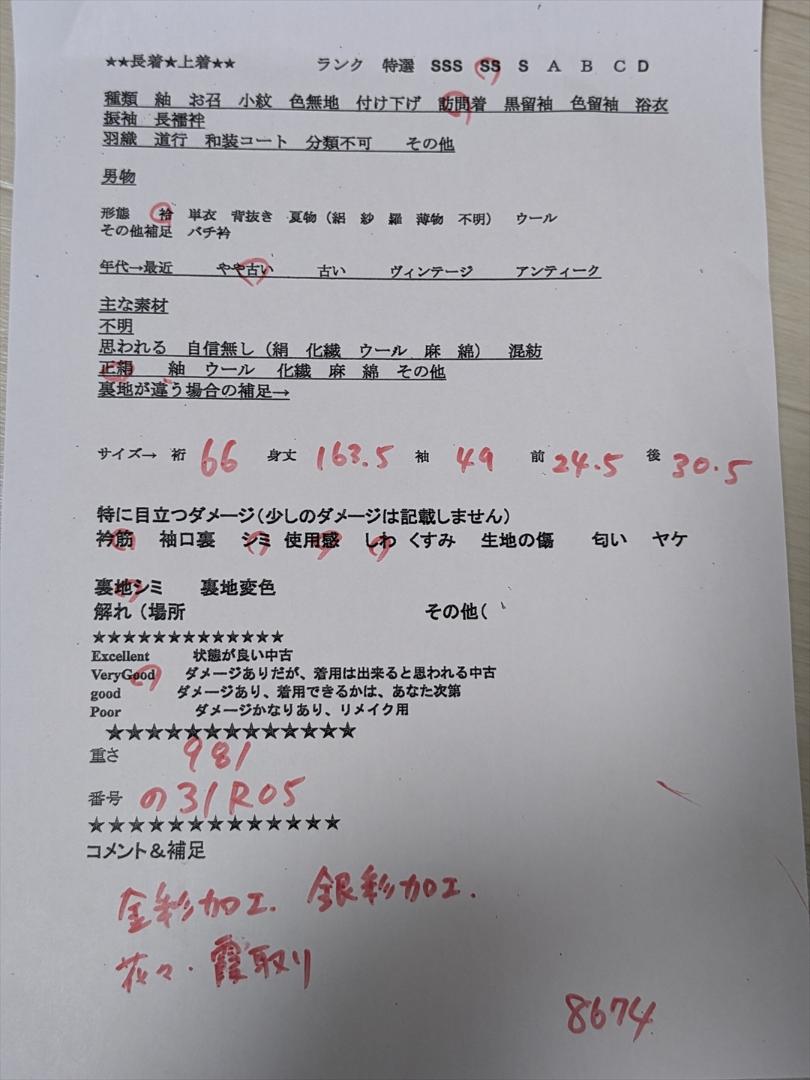 ★★長着★上着★★　ランク　特選　SSS　SS　S　A　B　C　D
種類　紬　お召　小紋　色無地　付け下げ　訪問着　黒留袖　色留袖　浴衣
振袖　長襦袢
羽織　道行　和装コート　分類不可　その他
男物
形態　袷　単衣　背抜き　夏物（絽　紗　羅　薄物　不明）　ウール
その他補足　バチ衿
年代→最近　やや古い　古い　ヴィンテージ　アンティーク
主な素材
不明
思われる　自信無し（絹　化繊　ウール　麻　綿）　混紡
正絹　紬　ウール　化繊　麻　綿　その他
裏地が違う場合の補足→
サイズ→　裄　66　身丈　163.5　袖　49　前　24.5　後　30.5
特に目立つダメージ（少しのダメージは記載しません）
衿筋　袖口裏　シミ　使用感　しわ　くすみ　生地の傷　匂い　ヤケ
裏地シミ　裏地変色
解れ（場所　その他（
★★★★★★★★★★★★★
Excellent　状態が良い中古
VeryGood　ダメージありだが、着用は出来ると思われる中古
good　ダメージあり、着用できるかは、あなた次第
Poor　ダメージかなりあり、リメイク用
★★★★★★★★★★★★★
重さ　981
番号　の31R05
★★★★★★★★★★★★★
コメント＆補足
金彩加工．銀彩加工．
花々・霞取り
8674